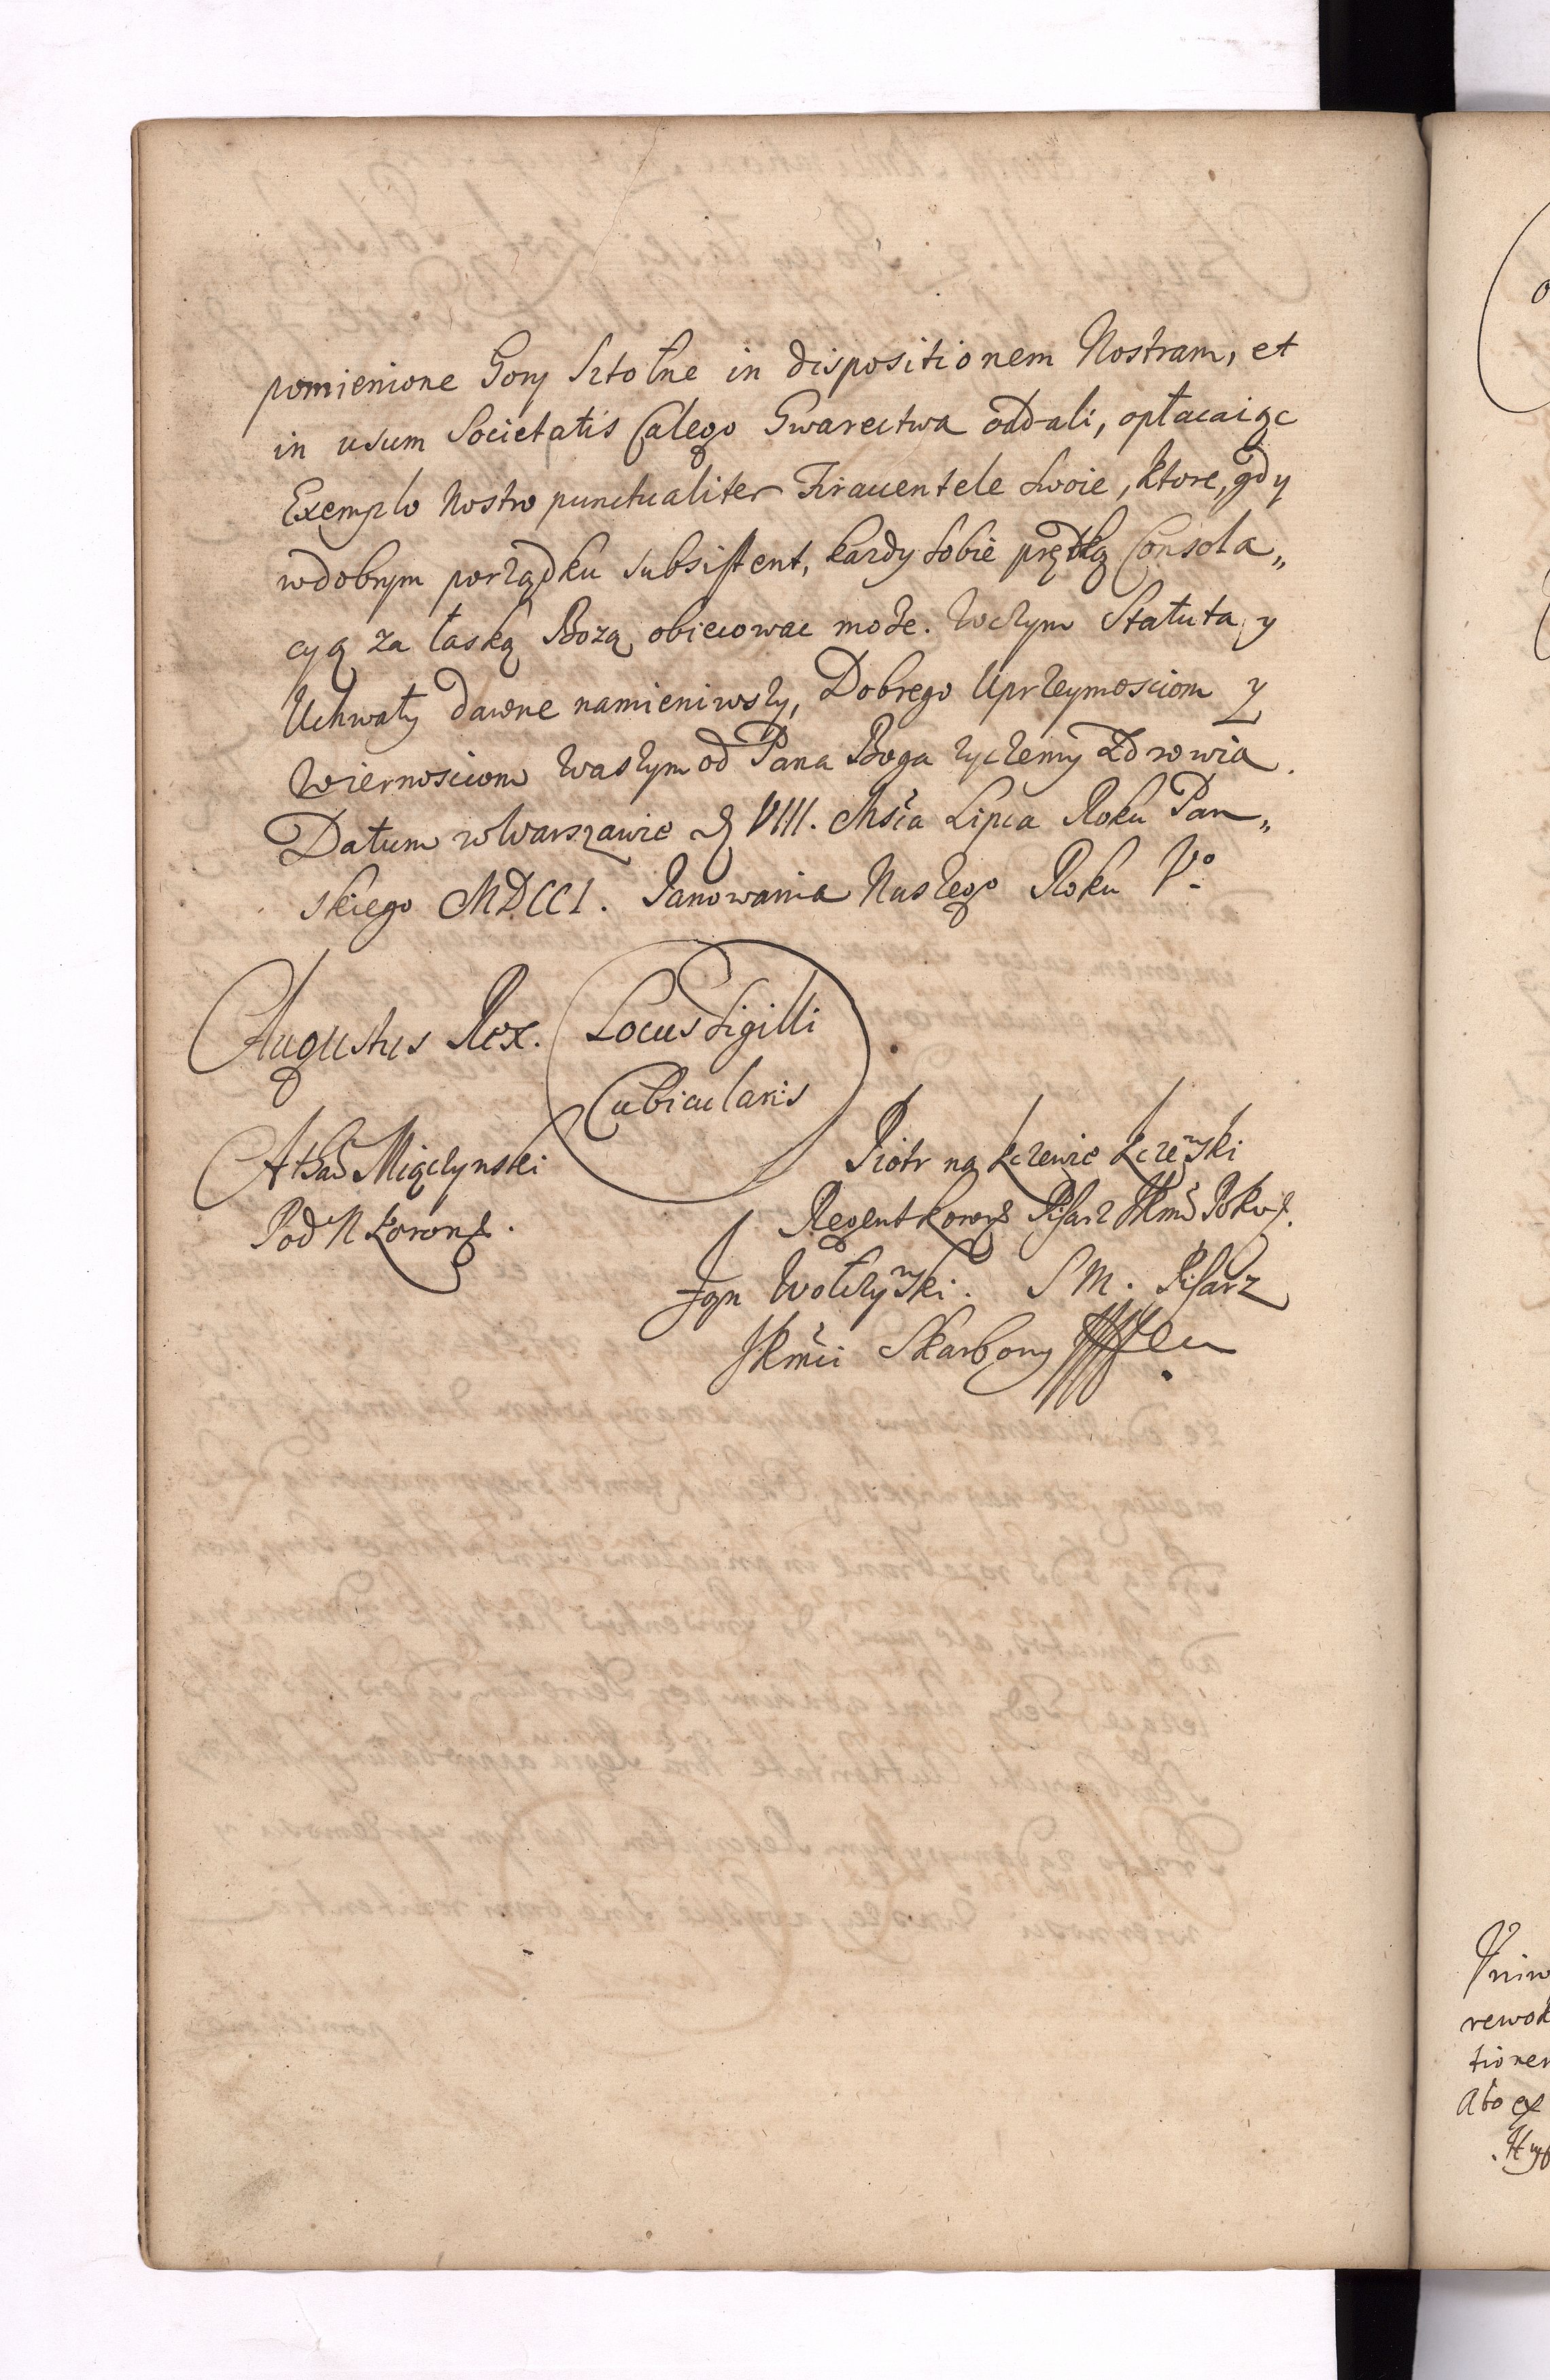 pomienione Gory Sztolne in dispositionem Nostram, et
in usum Societatis Całego Gwarectwa oddali, opłacaiąc
Exemplo Nostro punctualiter Firauentele swoie, ktore, gdy
wdobrym porządku subsistent, kazdy sobie prętką Consola„
cyą za łaską Bozą obiecowac może. Wczym Statuta y
Uchwały dawne namieniwszy, Dobrego Uprzeymosciom y
Wiernosciom Waszym od Pana Boga zyczemy Zdrowia.
Datum w Warszawie D VIII. Msća Lipca Roku Pan„
skiego MDCCI. Panowania Naszego Roku Vº
Augustus Rex. Locus Sigilli
Cubicularis
Athað Miączynski
Pod N Koronÿ.
Piotr na Łczewie Łczewski
Regent Koronÿ Pisarz JKmć Pokoj.
Jan Wolszynski. S M. Pisarz
JKmći Skarbony
Uniw
rewok
tionem
Abo ex